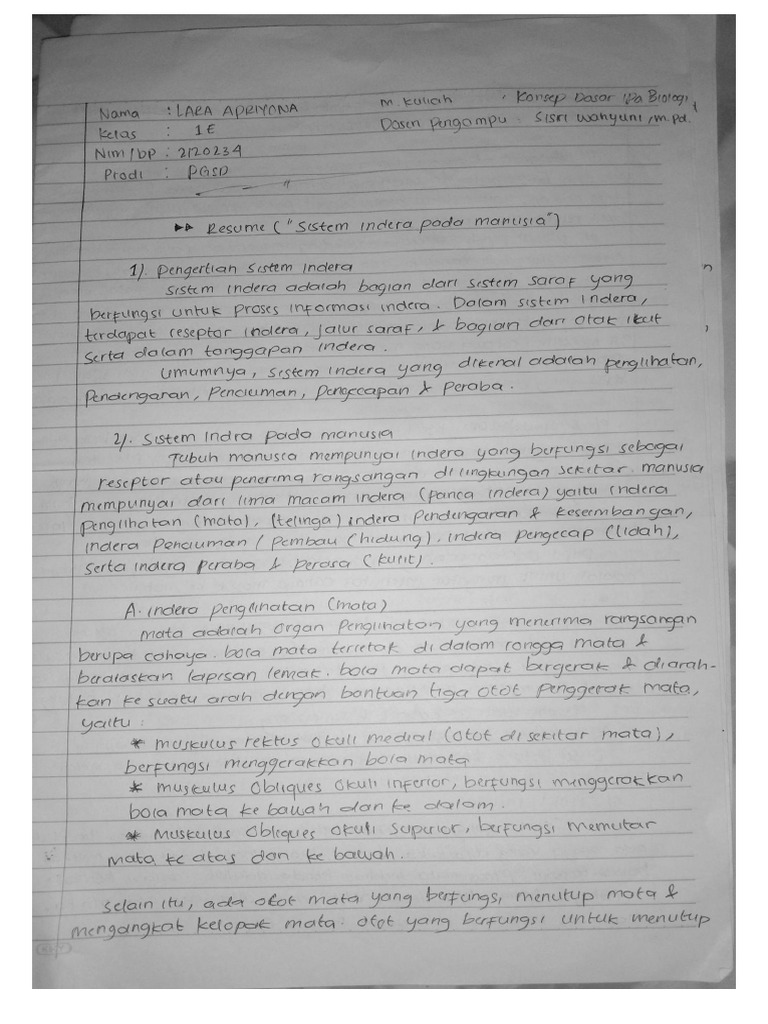 Nama : LARA ADRIYONA
Kelas : 1E
Nim/bp : 2120234
Prodi : PGSD
M. Kuliah : Konsep Dasar IPA Biologi
Dosen Pengampu : Sisri Wahyuni, M.Pd.
Resume ("Sistem indera pada manusia")
1). Pengertian Sistem Indera
Sistem indera adalah bagian dari sistem saraf yang
berfungsi untuk proses informasi indera. Dalam sistem indera,
terdapat reseptor indera, jalur saraf, & bagian dari otak ikut
serta dalam tanggapan indera.
Umumnya, sistem indera yang dikenal adalah penglihatan,
Pendengaran, Penciuman, Pengecapan & Peraba.
2). Sistem Indra pada manusia
Tubuh manusia mempunyai indera yang berfungsi sebagai
reseptor atau penerima rangsangan di lingkungan sekitar. manusia
mempunyai dari lima macam indera (panca indera) yaitu indera
penglihatan (mata), (telinga) indera Pendengaran & keseimbangan,
indera Penciuman / Pembau (hidung), indera pengecap (lidah),
serta indera peraba & perasa (kulit).
A. indera penglihatan (mata)
Mata adalah organ Penglihatan yang menerima rangsangan
berupa cahaya. bola mata terletak di dalam rongga mata &
beralaskan lapisan lemak. bola mata dapat bergerak & diarah-
kan ke suatu arah dengan bantuan tiga otot penggerak mata,
yaitu :
* muskulus rektus okuli medial (otot di sekitar mata),
berfungsi menggerakkan bola mata
* muskulus obliques okuli inferior, berfungsi menggerakkan
bola mata ke bawah dan ke dalam.
* Muskulus Obliques okuli superior, berfungsi memutar
mata ke atas dan ke bawah.
selain itu, ada otot mata yang berfungsi menutup mata &
mengangkat kelopak mata. otot yang berfungsi untuk menutup